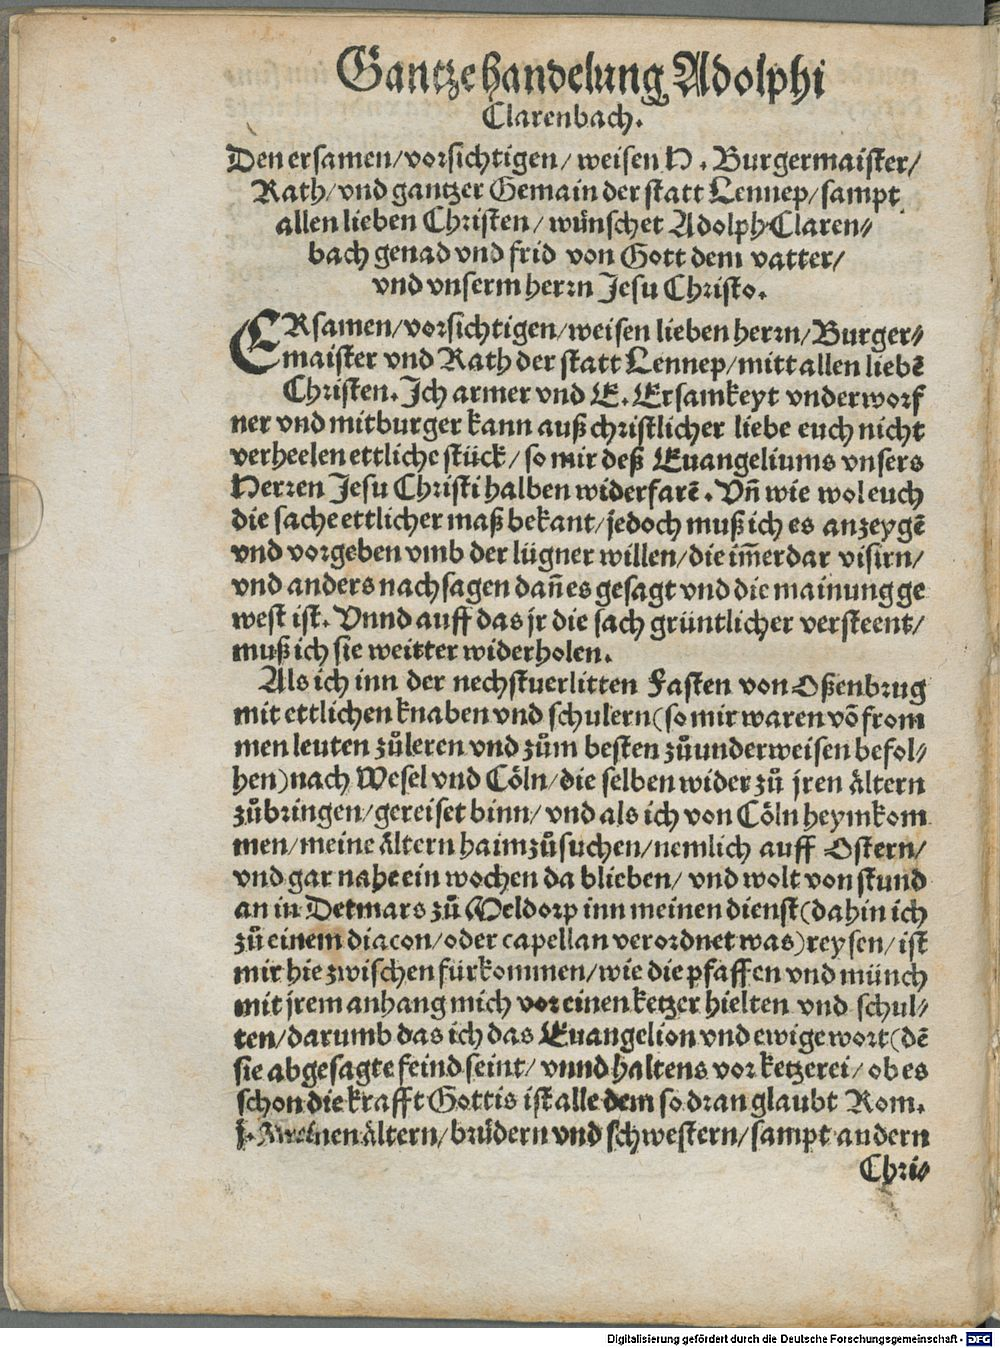 Gantze handelung Adolphi
Clarenbach.
Den ersamen/vorsichtigen/ weisen H. Burgermaister/
Rath/vnd gantzer Gemain der statt Lennep/sampt
allen lieben Christen/ wünschet Adolph Claren⸗
bach genad vnd frid von Gott dem vatter/
vnd vnserm herrn Jesu Christo.
ERsamen/vorsichtigen/weisen lieben herrn/Burger⸗
maister vnd Rath der statt Lennep/mitt allen liebē
Christen. Ich armer vnd E. Ersamkeyt vnderworf
ner vnd mitburger kann auß christlicher liebe euch nicht
verheelen ettliche stück/ so mir deß Euangeliums vnsers
Herren Jesu Christi halben widerfarē. Vn̄ wie wol euch
die sache ettlicher maß bekant/jedoch muß ich es anzeygē
vnd vorgeben vmb der lügner willen/die im̄erdar visirn/
vnd anders nachsagen dan̄ es gesagt vnd die mainung ge
west ist. Vnnd auff das jr die sach grüntlicher versteent/
muß ich sie weitter widerholen.
Als ich inn der nechstuerlitten Fasten von Oßenbrug
mit ettlichen knaben vnd schulern(so mir waren vō from
men leuten zůleren vnd zům besten zůunderweisen befol⸗
hen)nach Wesel vnd Cöln/die selben wider zů jren ältern
zůbringen/gereiset binn/ vnd als ich von Cöln heymkom
men/meine ältern haimzůsuchen/nemlich auff Ostern/
vnd gar nahe ein wochen da blieben/ vnd wolt von stund
an in Detmars zů Meldorp inn meinen dienst(dahin ich
zů einem diacon/oder capellan verordnet was)reysen/ist
mir hie zwischen fürkommen/wie die pfaffen vnd münch
mit jrem anhang mich vor einen ketzer hielten vnd schul⸗
ten/darumb das ich das Euangelion vnd ewige wort(dē
sie abgesagte feind seint/ vnnd haltens vor ketzerei/ ob es
schon die krafft Gottis ist alle dem so dran glaubt Rom.
j. meinen ältern/ brüdern vnd schwestern/sampt andern
Chri⸗
Digitalisierung gefördert durch die Deutsche Forschungsgemeinschaft - DFG